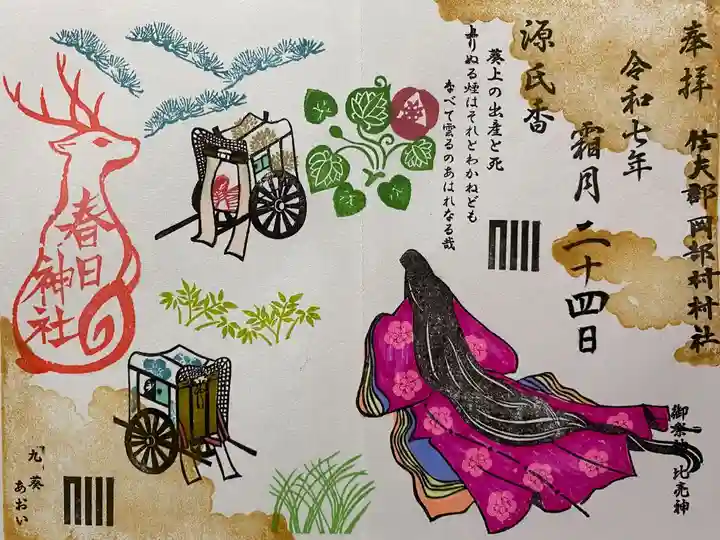 奉拝
信夫郡岡部村村社
令和七年
霜月二十四日
源氏香
葵上の出産と死
上りぬる煙はそれとわかねども
なべて雲ゐのあはれなる哉
春日
神社
御祭神 比売神
九葵
あおい